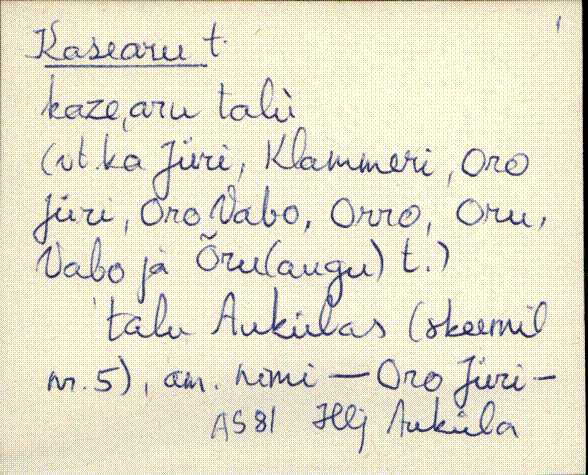 Kasearu t.
kaze,aru talù
(vt. ka Jüri, Klammeri, Oro
Jüri, Oro Vabo, Orro, Oru,
Vabo ja Õru(augu) t.)
talu Aukülas (skeemil
nr. 5), am. nimi — Oro Jüri -
AS 81 Hlj Auküla